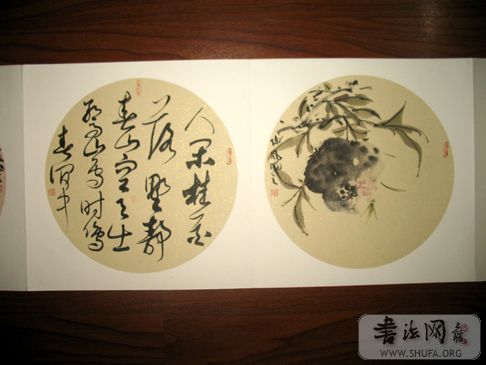 人闲桂花
落夜静
春山空月出
惊山鸟时鸣
春涧中
书法网
WWW.SHUFA.ORG